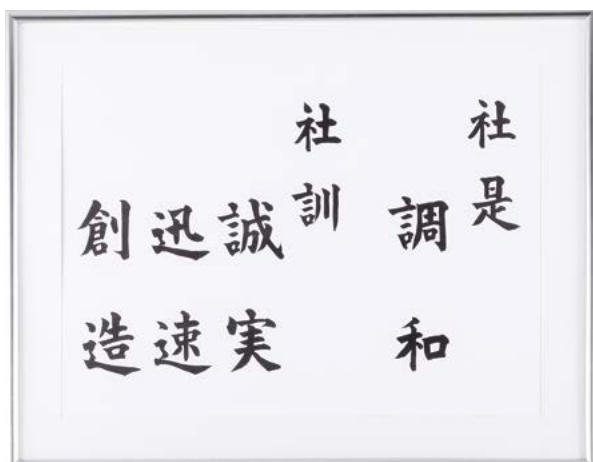 社是
調和
社訓
誠実
迅速
創造